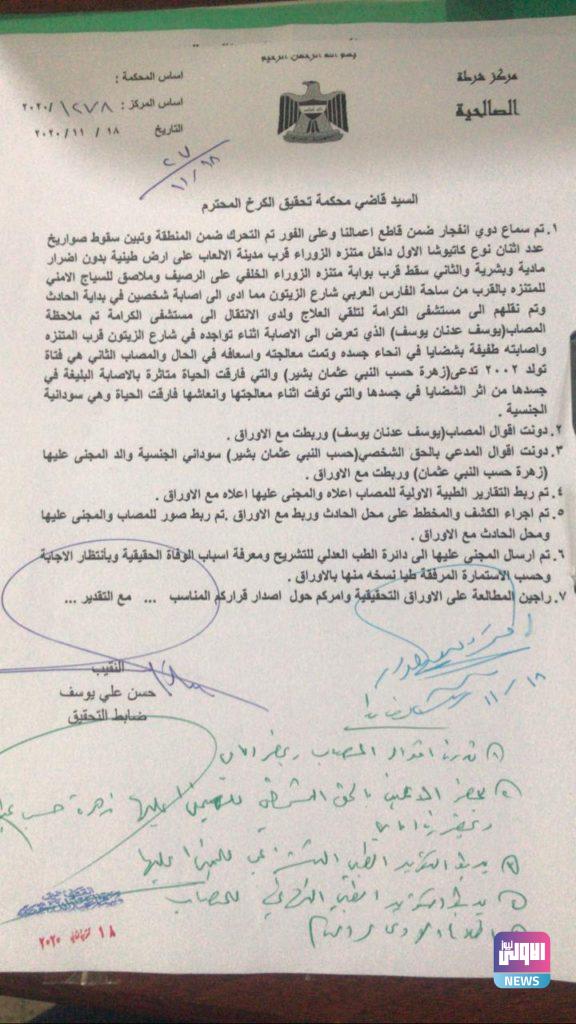 بسم الله الرحمن الرحيم
مركز شرطة
الصالحية
اساس المحكمة :
اساس المركز : ١٢٧٨/ ٢٠٢٠
التاريخ ١٨ / ١١ / ٢٠٢٠
٢٧
١١/١٨
السيد قاضي محكمة تحقيق الكرخ المحترم
١. تم سماع دوي انفجار ضمن قاطع اعمالنا وعلى الفور تم التحرك ضمن المنطقة وتبين سقوط صواريخ
عدد اثنان نوع كاتيوشا الاول داخل متنزه الزوراء قرب مدينة الالعاب على ارض طينية بدون اضرار
مادية وبشرية والثاني سقط قرب بوابة متنزه الزوراء الخلفي على الرصيف وملاصق للسياج الامني
للمتنزه بالقرب من ساحة الفارس العربي شارع الزيتون مما ادى الى اصابة شخصين في بداية الحادث
وتم نقلهم الى مستشفى الكرامة لتلقي العلاج ولدى الانتقال الى مستشفى الكرامة تم ملاحظة
المصاب(يوسف عدنان يوسف) الذي تعرض الى الاصابة اثناء تواجده في شارع الزيتون قرب المتنزه
واصابته طفيفة بشضايا في انحاء جسده وتمت معالجته واسعافه في الحال والمصاب الثاني هي فتاة
تولد ٢٠٠٢ تدعى(زهرة حسب النبي عثمان بشير) والتي فارقت الحياة متاثرة بالاصابة البليغة في
جسدها من اثر الشضايا في جسدها والتي توفت اثناء معالجتها وانعاشها فارقت الحياة وهي سودانية
الجنسية .
٢. دونت اقوال المصاب(يوسف عدنان يوسف) وربطت مع الاوراق .
٣. دونت اقوال المدعي بالحق الشخصي(حسب النبي عثمان بشير) سوداني الجنسية والد المجنى عليها
(زهرة حسب النبي عثمان) وربطت مع الاوراق .
٤. تم ربط التقارير الطبية الاولية للمصاب اعلاه والمجنى عليها اعلاه مع الاوراق .
٥. تم اجراء الكشف والمخطط على محل الحادث وربط مع الاوراق .تم ربط صور للمصاب والمجنى عليها
ومحل الحادث مع الاوراق .
٦. تم ارسال المجنى عليها الى دائرة الطب العدلي للتشريح ومعرفة اسباب الوفاة الحقيقية وبأنتظار الاجابة
وحسب الاستمارة المرفقة طيا نسخه منها بالاوراق .
٧. راجين المطالعة على الاوراق التحقيقية وامركم حول اصدار قراركم المناسب ... مع التقدير ...
النقيب
حسن علي يوسف
ضابط التحقيق
١١/١٨
اقوال المصاب
بالحق الشخصي زهرة حسب
الطبي
الطبي للمصاب
١٨ ٢٠٢٠
الاولى نيوز
NEWS